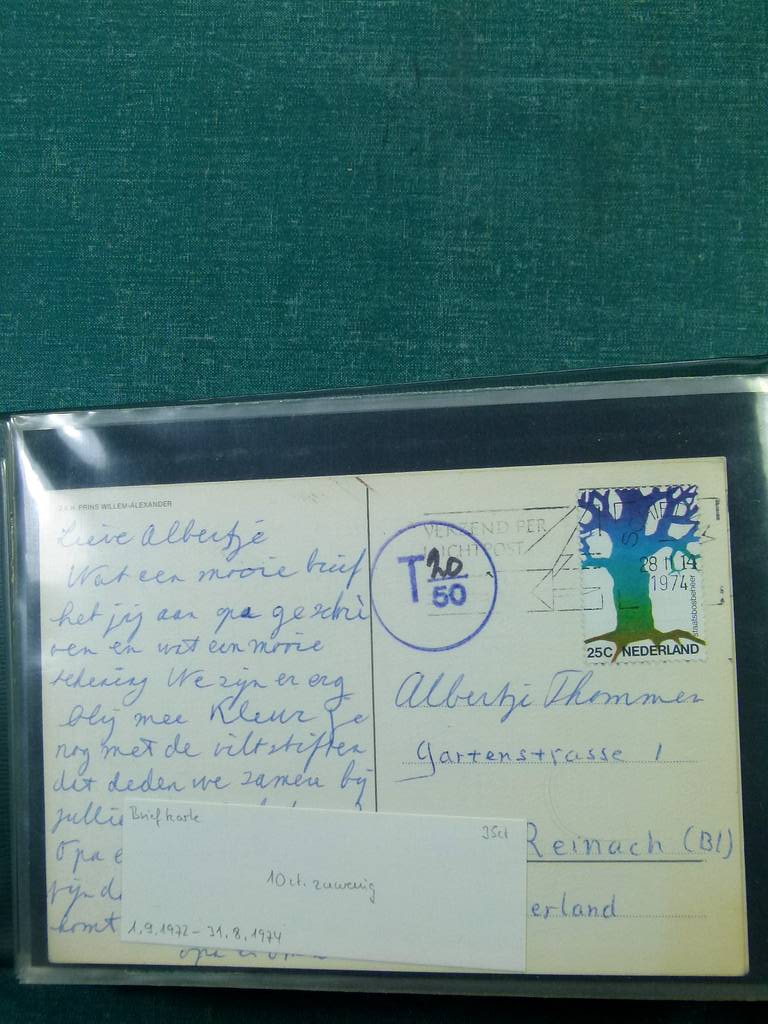 Z.K.H. PRINS WILLEM-ALEXANDER
Lieve Albertje
Wat een mooie brief
het jij aan opa geschre
ven en wat een mooie
tekening We zijn er erg
blij mee Kleur je
nog met de viltstiften
dit deden we zamen bij
jullie
Opa e
zijn d
komt
opa
VERZEND PER
LUCHTPOST
T 20
50
28 II 14
1974
staatsbosbeheer
25C NEDERLAND
Albertje Thommen
Gartenstrasse 1
Reinach (Bl)
erland
Briefkarte
35ct
10ct. zuwenig
1.9.1972 - 31.8.1974